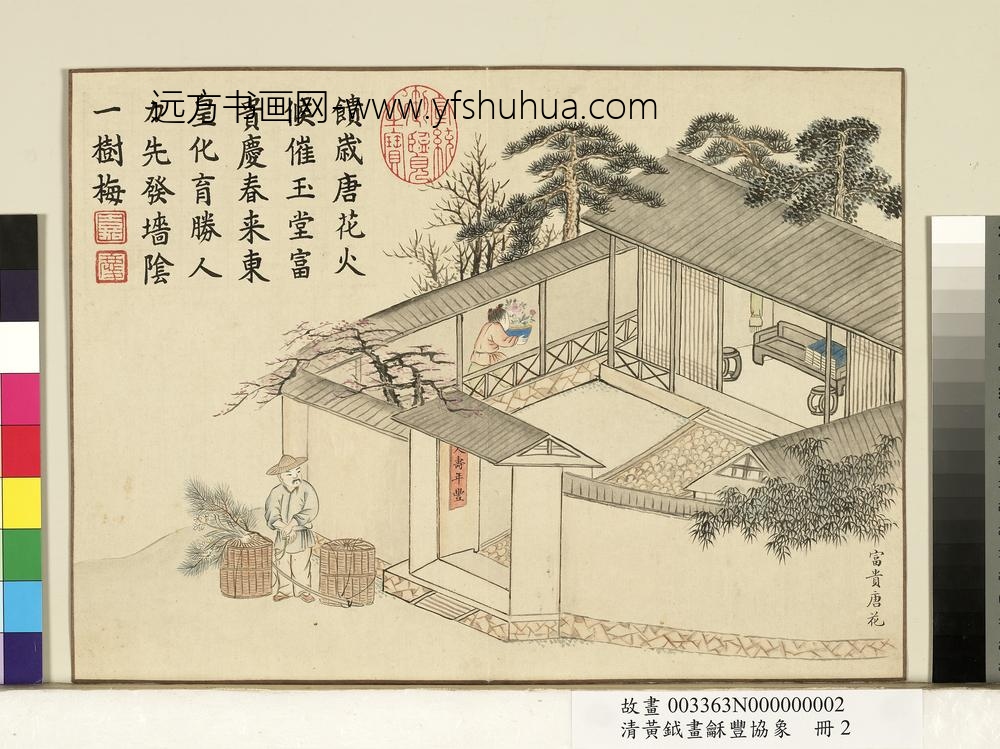 远方书画网 www.yfshuhua.com
饋歲唐花火
候催玉堂富
貴慶春来東
皇化育勝人
力先發墻陰
一樹梅
宣統御覽之寶
嘉
慶
人壽年豐
富貴唐花
故畫 003363N000000002
清黃鉞畫龢豐協象 冊 2